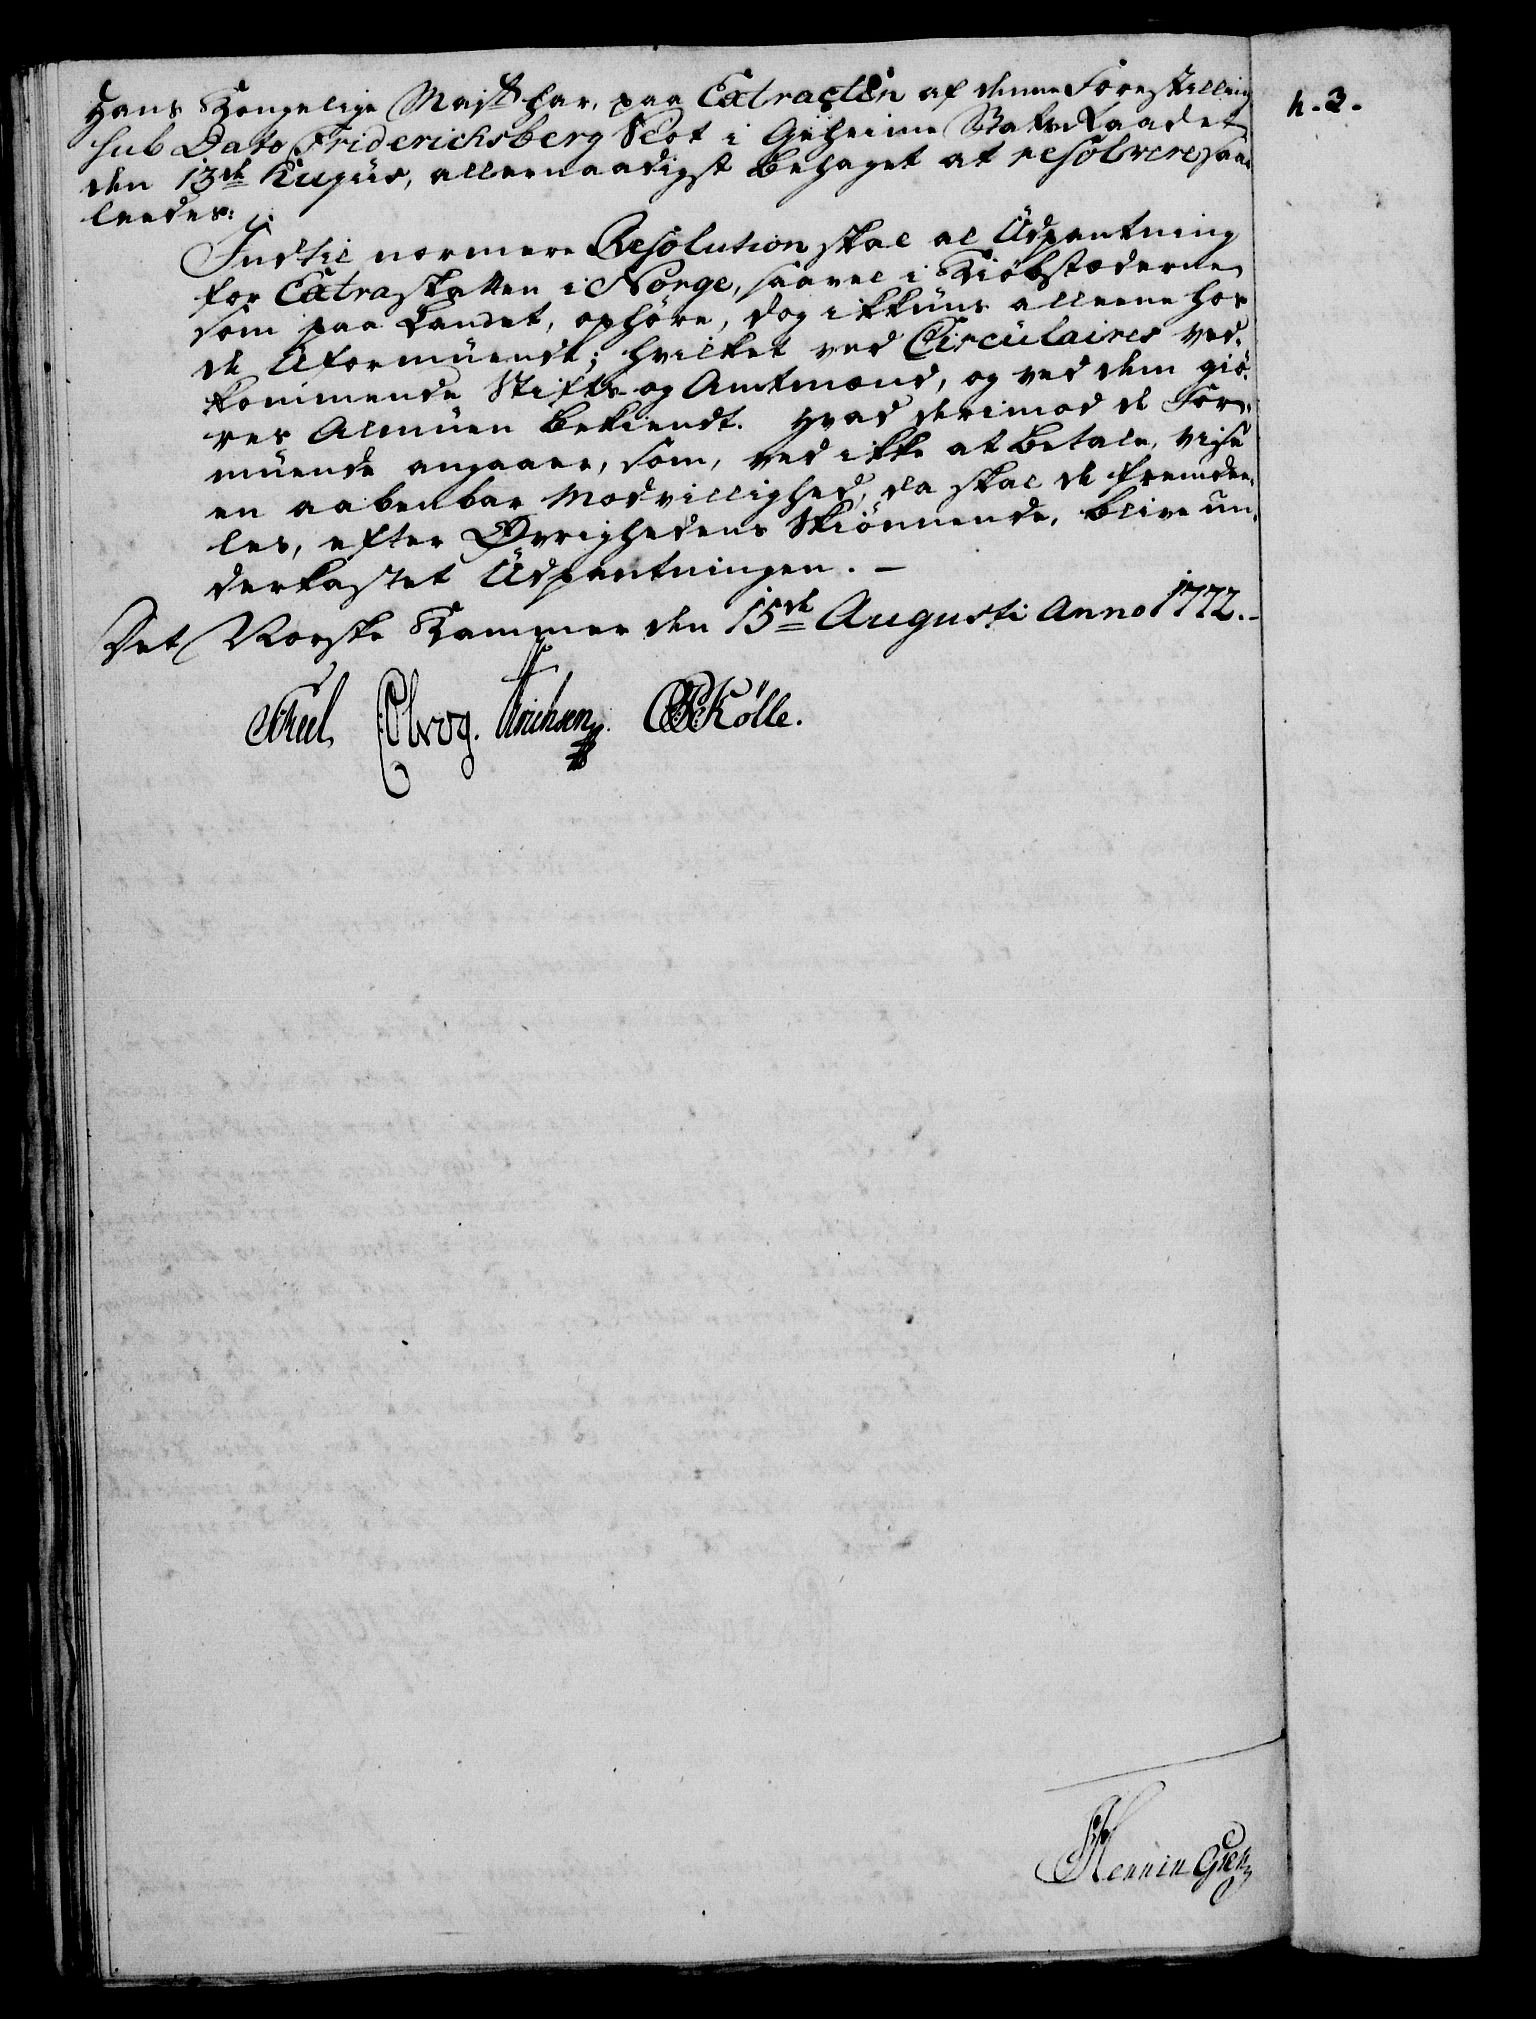 Hans Kongelige Majst: har, paa Extracten af denne Forestilling
h. 3.
sub Dato Fridericksberg Slot i Geheime Stats Raadet
den 13de Augus, allernaadigst behaget at resolvere saa-
leedes:
Indtil nærmere Resolution skal al Udpantning
for Extraskatten i Norge, saavel i Kiøbstæderne
som paa Landet, ophøre, dog ikkuns alleene hos
de Uformuende; hvilket ved Circulaires ved-
kommende Stifts- og Amtmænd, og ved dem giø-
res Almuen bekiendt. Hvad derimod de For-
muende angaaer, som, ved ikke at betale, vise
en aabenbar Modvillighed, da skal de fremdee-
les, efter Øvrighedens Skiønnende, blive un-
derkastet Udpantningen. —
Det Norske Kammer den 15de Augusti Anno 1772. -
Krog. Kølle.